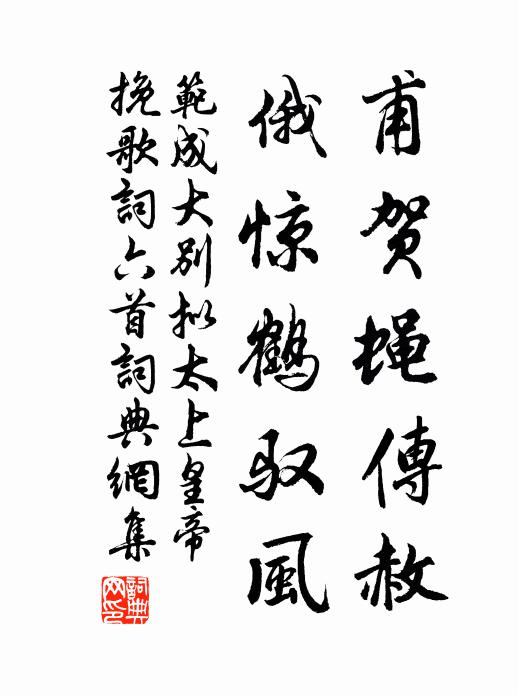 甫贺蝇傳赦
俄惊鹤驭風
範成大别拟太上皇帝
挽歌詞六首詞典網集
詞典網印